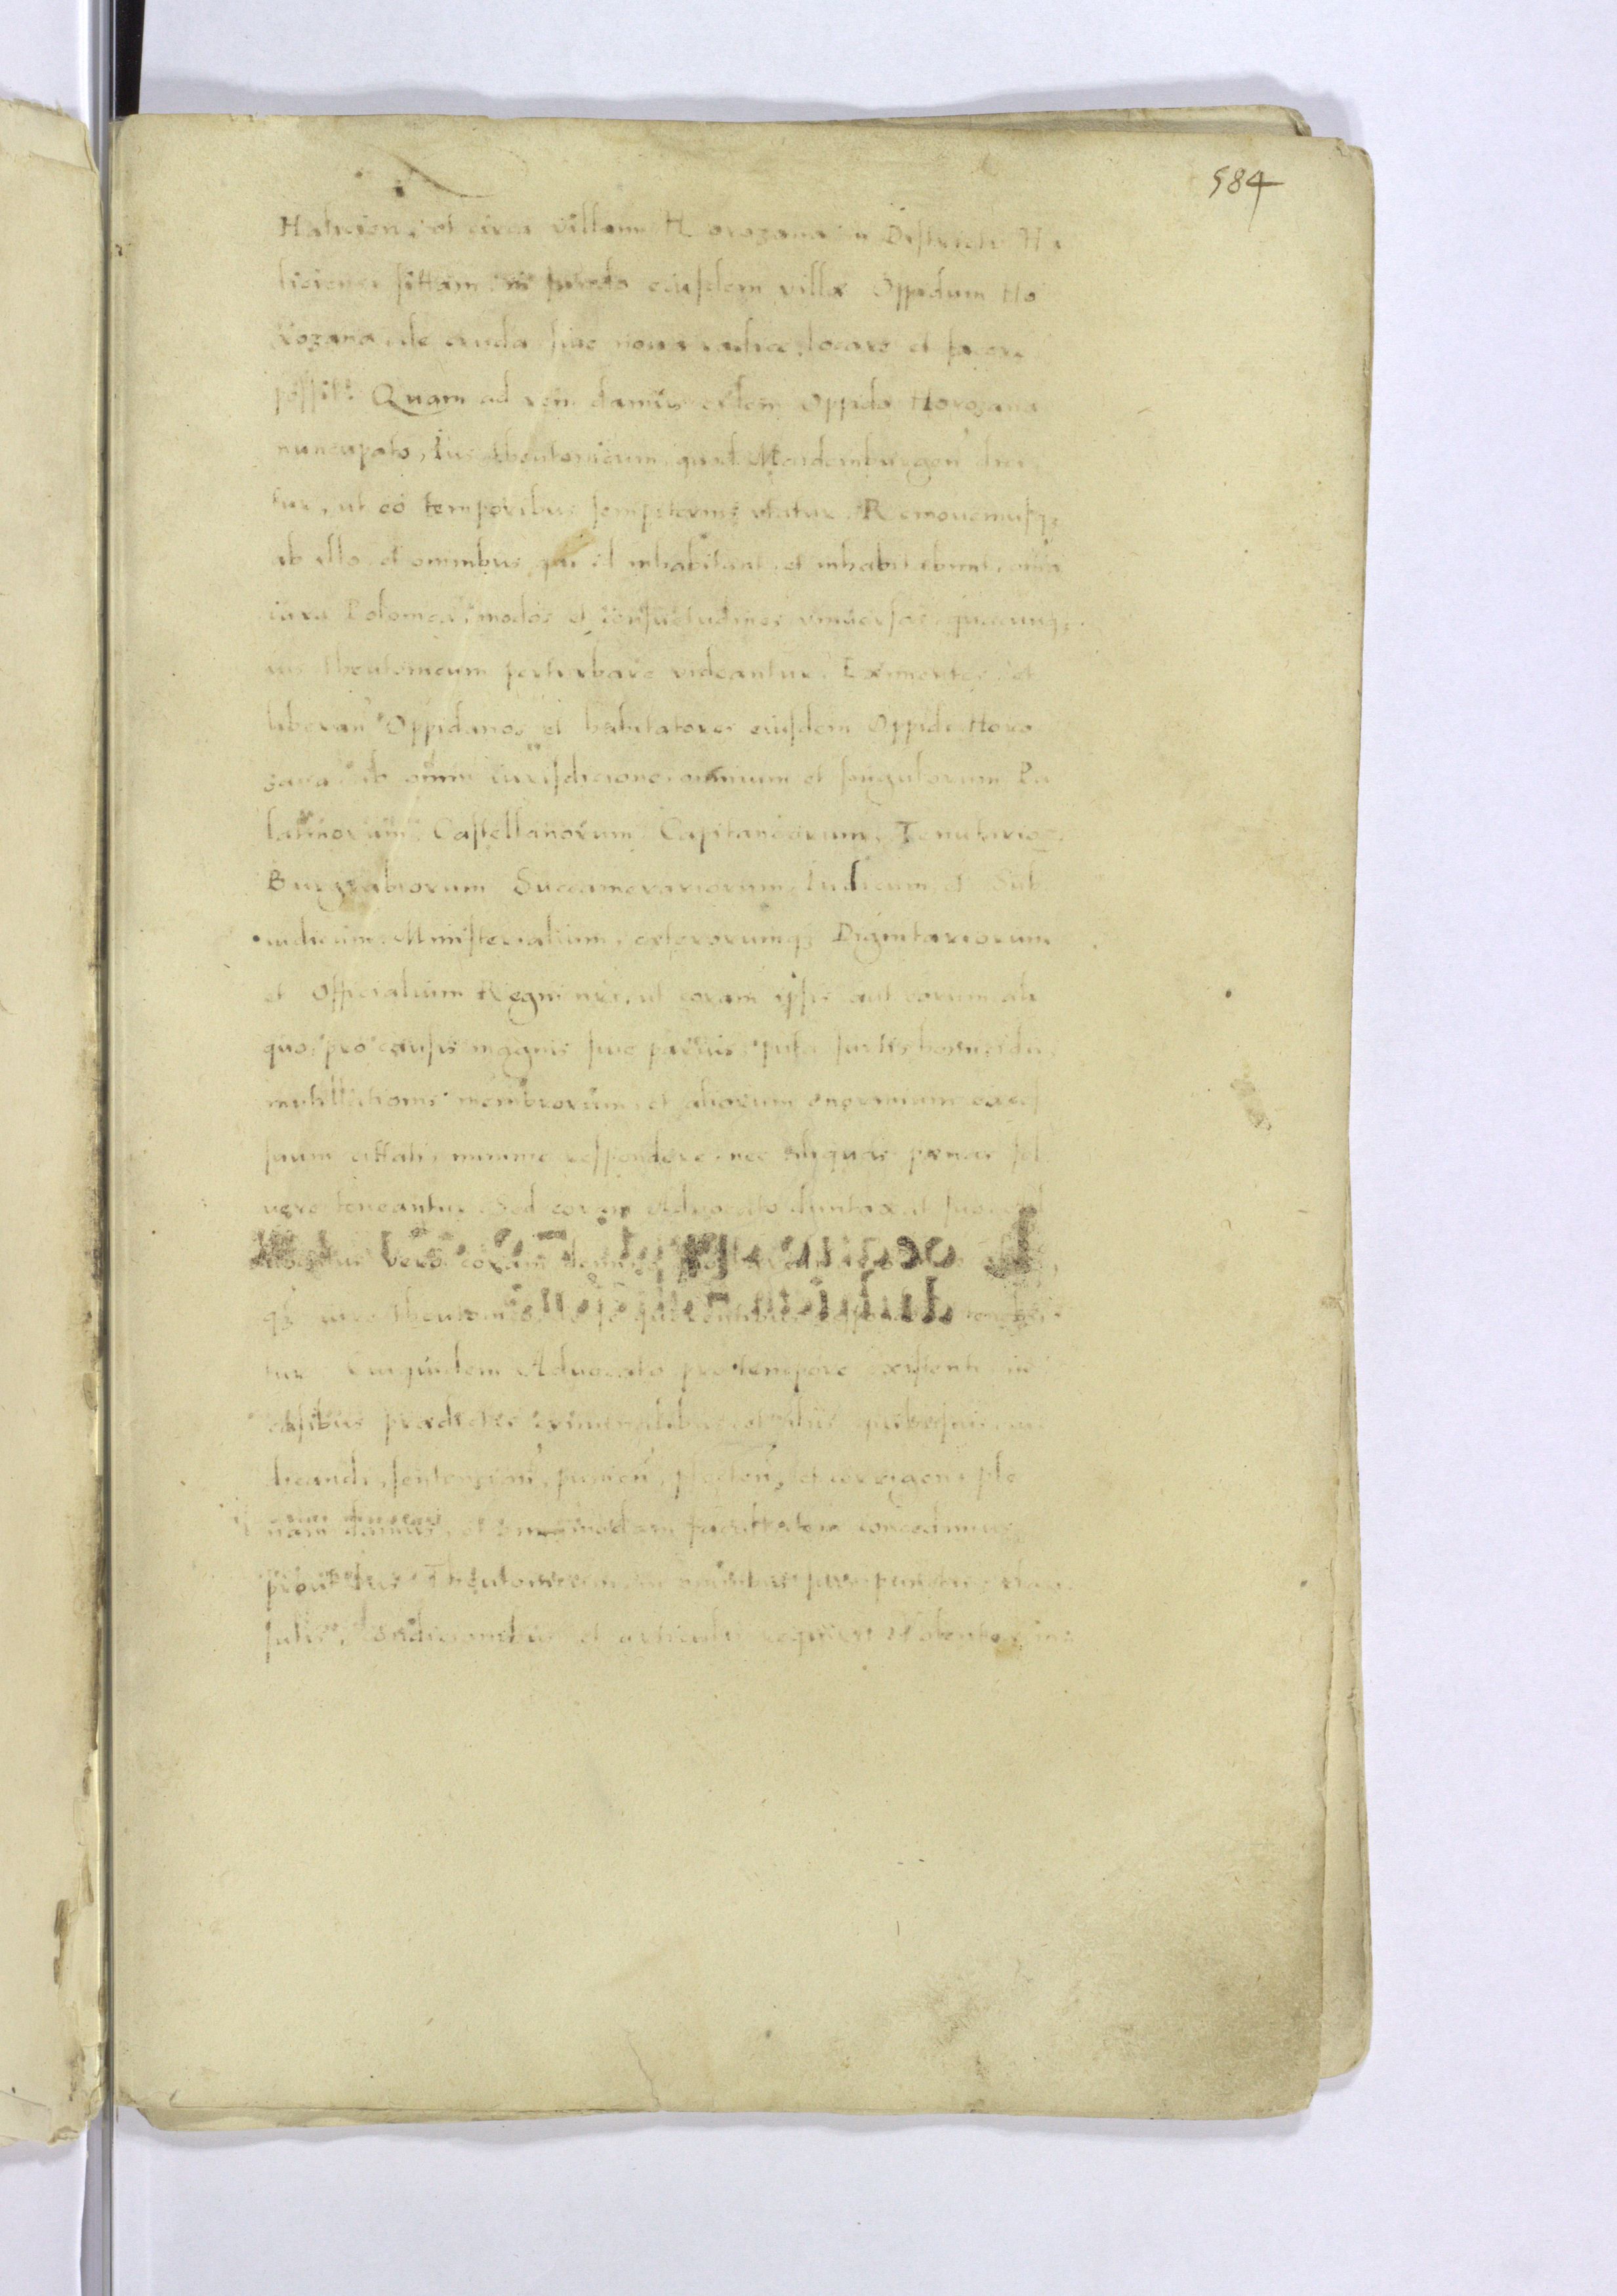 584
Halicien, et circa villam Horozana in Districtu Ha
liciensi sittam in fundo eiusdem villæ Oppidum Ho
rozana de cruda sive nova radice locare et facere
possit. Quam ad rem damus eidem Oppido Horozana
nuncupato, Ius theutonicum, quod Maidemburgen dici
tur, ut eo temporibus sempiternis utatur. Removemusqȝ
ab illo et omnibus qui id inhabitant et inhabitabunt, omnia
iura Polonica, modos et consuetudines universas quæcunqȝ
ius theutonicum perturbare videantur. Eximentes, et
liberan Oppidanos et habitatores eiusdem Oppidi Horo
zana ab omni iurisdicione omnium et singulorum Pa
latinorum, Castellanorum, Capitaneorum, Tenutarior
Burgrabiorum Succamerariorum, Iudicum, et Sub
iudicum, Ministerialium, cæterorumqȝ Dignitariorum
et Officialium Regni nri, ut coram ipsis aut eorum ali
quo, pro causis magnis sive parvis, puta furtis homicidii,
mutillationis membrorum, et aliorum enormium exces
suum cittati, minime respondere, nec aliquas pœnas sol
vere teneantur. Sed coram Advocato duntaxat suo
Advocatus vero coram
qȝ iure theutonico de se querentibus respondere tenebi
tur Cui quidem Advocato pro tempore existenti in
casibus prædictis criminalibus et aliis quibusvis iu
dicandi, sentencian, punien, plecten, et corrigen, ple
nam damus, et omnimodam facultatem concedimus
prout Ius Theutonicum in omnibus suis punctis, clau
sulis, Condicionibus et articulis requirit. Volentes,